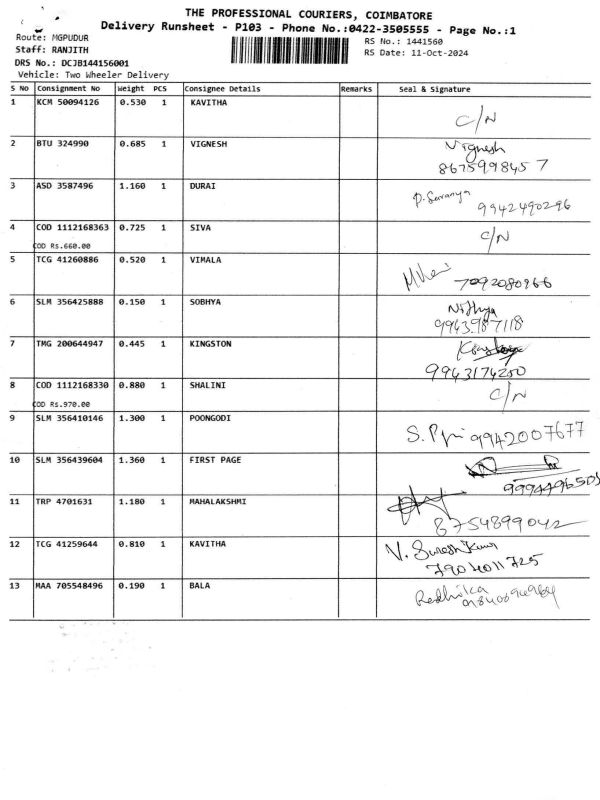 THE PROFESSIONAL COURIERS, COIMBATORE
Delivery Runsheet - P103 - Phone No.:0422-3505555 - Page No.:1
Route: MGPUDUR
RS No.: 1441560
Staff: RANJITH
RS Date: 11-Oct-2024
DRS No.: DCJB144156001
Vehicle: Two Wheeler Delivery
S No Consignment No Weight PCS Consignee Details Remarks Seal & Signature
1 KCM 50094126 0.530 1 KAVITHA
C/N
2 BTU 324990 0.685 1 VIGNESH Vignesh
8675998457
3 ASD 3587496 1.160 1 DURAI
P. Saranya 9942490296
4 COD 1112168363 0.725 1 SIVA C/N
COD Rs.660.00
5 TCG 41260886 0.520 1 VIMALA
7092080966
6 SLM 356425888 0.150 1 SOBHYA Nithya
9943987118
7 TMG 200644947 0.445 1 KINGSTON
9943174250
8 COD 1112168330 0.880 1 SHALINI C/N
COD Rs.970.00
9 SLM 356410146 1.300 1 POONGODI
9942007677
10 SLM 356439604 1.360 1 FIRST PAGE
11 TRP 4701631 1.180 1 MAHALAKSHMI
8754899042
12 TCG 41259644 0.810 1 KAVITHA V. Suresh Kumar
7904011725
13 MAA 705548496 0.190 1 BALA